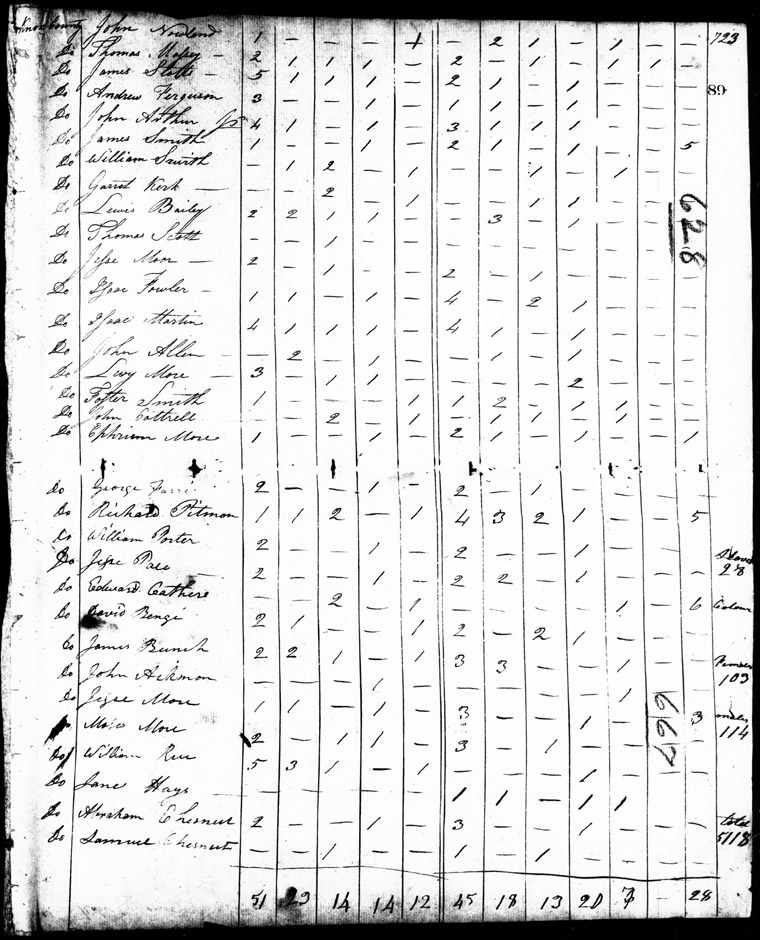 Knox County John Nowland 1 — — — + — 2 1 — 1 — — 723
Do Thomas — 2 1 1 1 — 2 — 1 — 1 1 —
Do James Stotts 5 1 1 1 — 2 1 — 1 — — —
89
Do Andrew Ferguson 3 — — 1 — 1 1 1 — — — —
Do John Arthur Jr 4 1 — 1 — 3 1 1 1 — — —
Do James Smith 1 — — 1 — 2 1 — 1 — — 5
Do William Smith — 1 2 — 1 — — 1 — 1 — —
Do Garret Kirk — — 2 — — — — 1 1 — — —
Do Lewis Bailey 2 2 1 1 — — 3 — 1 — — —
628
Do Thomas Scott — — 1 — — — — — — — — —
Do Jesse Moor 2 — 1 — — 2 — 1 — — — —
Do Isaac Fowler 1 1 — 1 — 4 — 2 1 — — —
Do Isaac Martin 4 1 1 1 — 4 1 — 1 — — —
Do John Allen — 2 — — — — 1 — 1 — — —
Do Levy More 3 — 1 1 — — — — 2 — — —
Do Foster Smith 1 — — — 1 1 2 — 1 1 — —
Do John Cottrell — — 2 — 1 — 1 1 — 1 — —
Do Ephrium More 1 — — 1 — 2 — — 1 — — 1
Do George 2 — — 1 — 2 — 1 — — — —
Do Richard Pitmon 1 1 2 — 1 4 3 2 1 — — 5
Do William Porter 2 — — 1 — 2 — — 1 — — —
Do Jesse Pace 2 — — 1 — 2 2 — 1 — — —
Slaves
28
Do Edward — — 2 — 1 — — — — 1 — 6
Do David Benge 2 1 — — 1 2 — 2 1 — — —
Do James Bunch 2 2 1 — 1 3 3 — — 1 — —
103
Do John Ackmon — — — 1 — — — — — 1 — —
Do Jesse More 1 1 — 1 — 3 — — — — — 3
667
114
Do Moses More 2 — 1 1 — 3 — — 1 — — —
Do William Rice 5 3 1 — 1 — — 1 — — — —
Do Jane Hays — — — — — 1 1 — 1 1 — —
Do Abraham Chesnut 2 — — 1 — 3 — — 1 — — —
total
5118
Do Samuel Chesnut — — 1 — — 1 — 1 — — — —
51 23 14 14 12 45 18 13 20 7 — 28